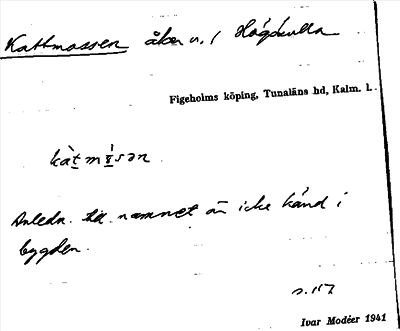 Kattmossen åker u. / Högkulla
Figeholms köping, Tunaläns hd, Kalm. l.
Anledn. till namnet är icke känd i
bygden.
s. 117
Ivar Modéer 1941